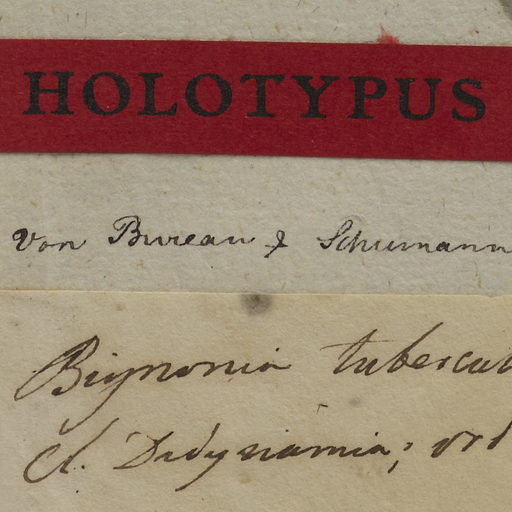 HOLOTYPUS
von Bureau & Schumann
Bignonia tubercul
Cl. Didynamia; ord